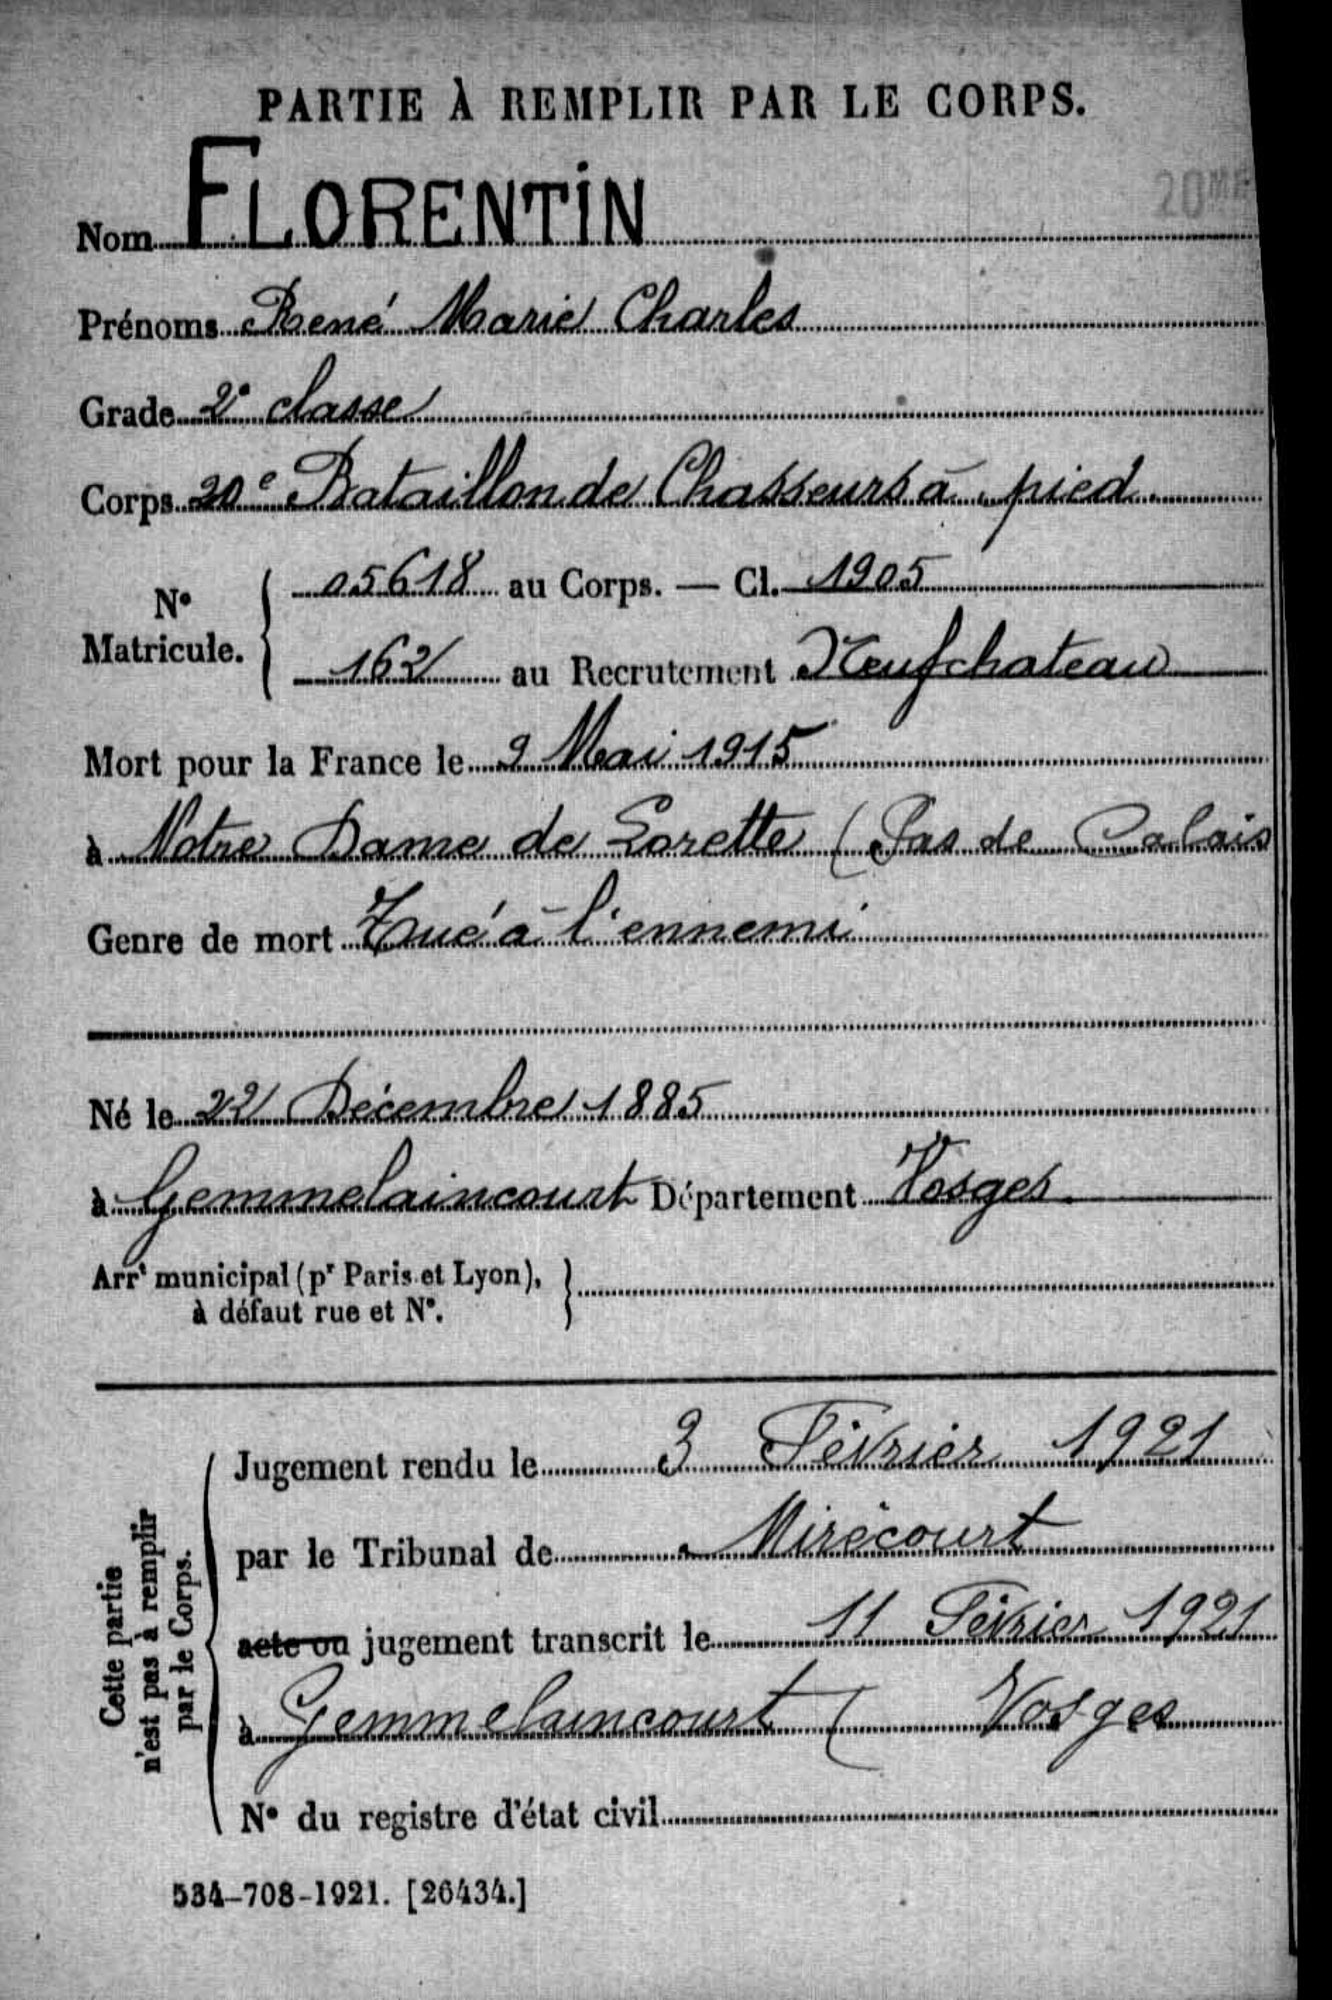 PARTIE À REMPLIR PAR LE CORPS.
20ME
Nom FLORENTIN
Prénoms René Marie Charles
Grade 2e classe
Corps 20e Bataillon de Chasseurs à pied.
No Matricule. { 05618 au Corps. — Cl. 1905
162 au Recrutement Neufchateau
Mort pour la France le 9 Mai 1915
à Notre Dame de Lorette (Pas de Calais
Genre de mort Tué à l'ennemi
Né le 22 Décembre 1885
à Gemmelaincourt Département Vosges.
Arrt municipal (pr Paris et Lyon), }
à défaut rue et No.
Cette partie
n'est pas à remplir
par le Corps.
Jugement rendu le 3 Février 1921
par le Tribunal de Mirecourt
acte ou jugement transcrit le 11 Février 1921
à Gemmelaincourt ( Vosges
No du registre d'état civil
534-708-1921. [26434.]